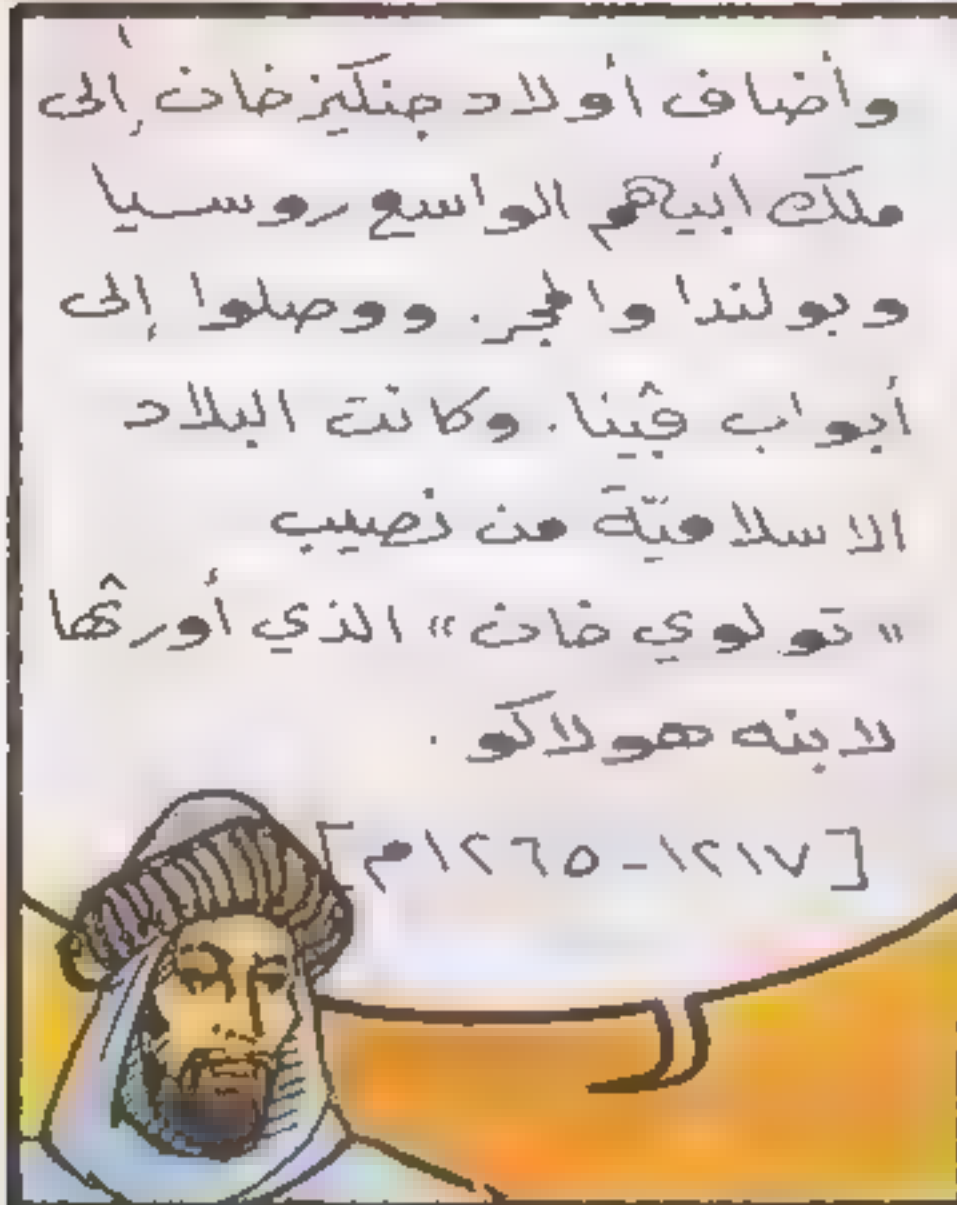 وأضاف أولاد جنكيز خان إلى
ملك أبيهم الواسع روسيا
وبولندا والمجر. ووصلوا إلى
أبواب ڤينا. وكانت البلاد
الاسلاميّة من نصيب
«تولوي خان» الذي أورثها
لابنه هولاكو.
[١٢١٧-١٢٦٥م]